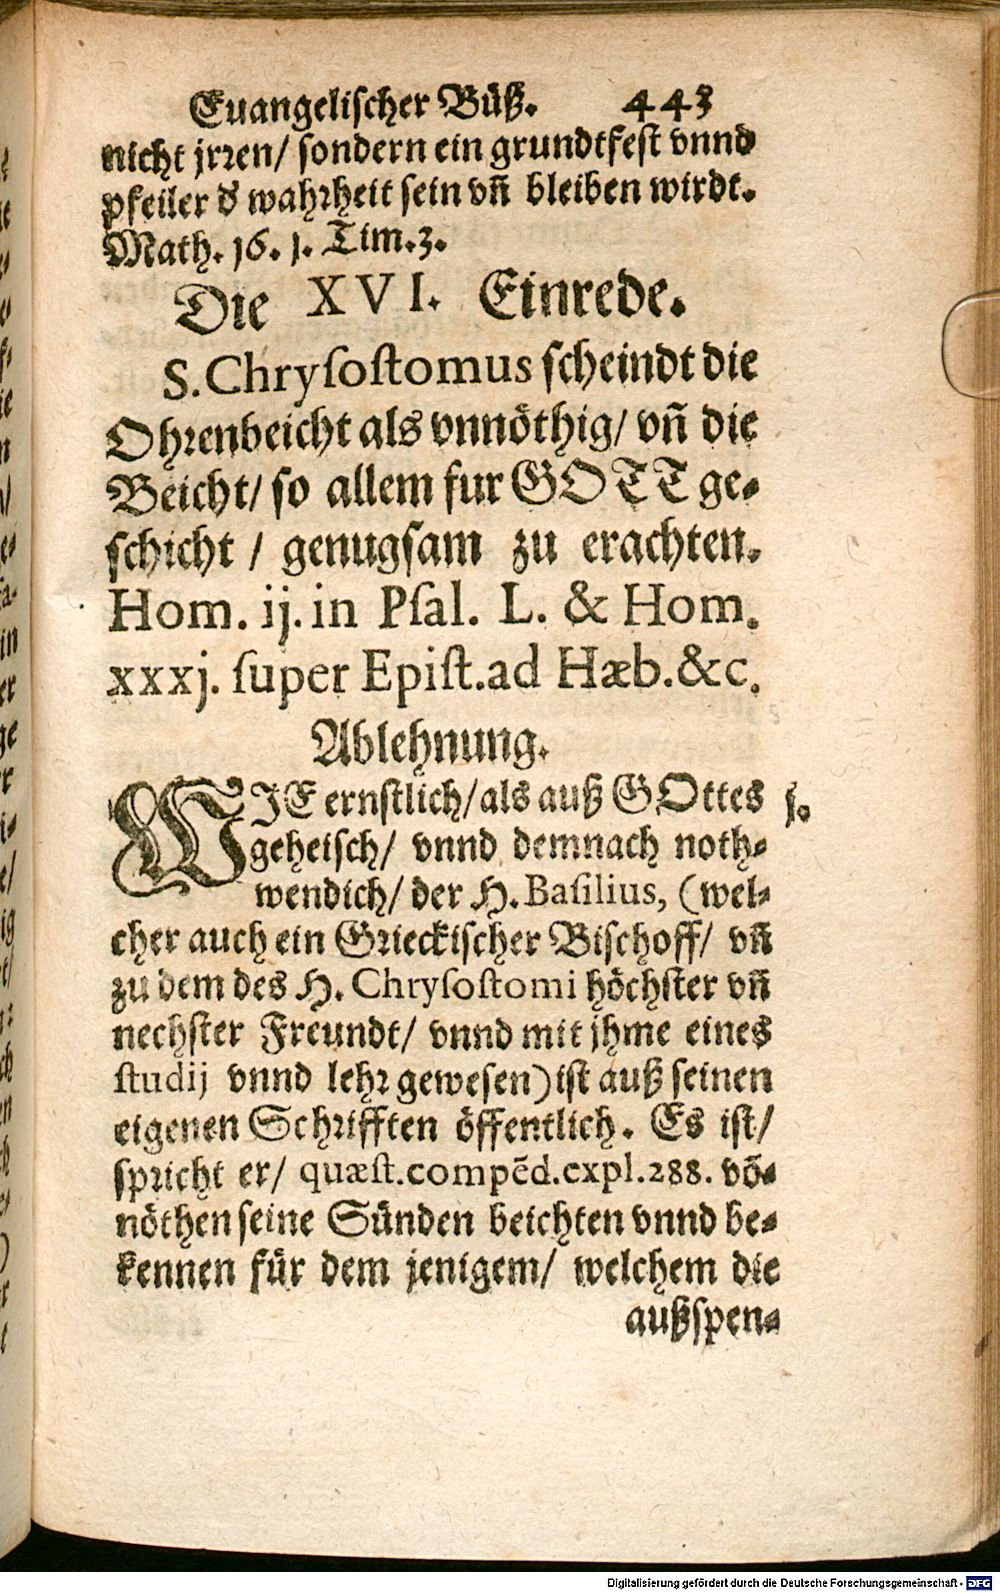 Euangelischer Büß. 443
nicht jrren/ sondern ein grundtfest vnnd
pfeiler d wahrheit sein vñ bleiben wirdt.
Math. 16. 1. Tim. 3.
Die XVI. Einrede.
S. Chrysostomus scheindt die
Ohrenbeicht als vnnöthig/ vñ die
Beicht/ so allem fur GOTT ge-
schicht / genugsam zu erachten.
Hom. ij. in Psal. L. & Hom.
xxxj. super Epist. ad Hæb. &c.
Ablehnung.
WIE ernstlich/ als auß GOttes j.
geheisch/ vnnd demnach noth-
wendich/ der H. Basilius, (wel-
cher auch ein Grieckischer Bischoff/ vñ
zu dem des H. Chrysostomi höchster vñ
nechster Freundt/ vnnd mit jhme eines
studij vnnd lehr gewesen) ist auß seinen
eigenen Schrifften öffentlich. Es ist/
spricht er/ quæst. compēd. expl. 288. võ-
nöthen seine Sünden beichten vnnd be-
kennen für dem jenigem/ welchem die
außspen-
Digitalisierung gefördert durch die Deutsche Forschungsgemeinschaft - DFG